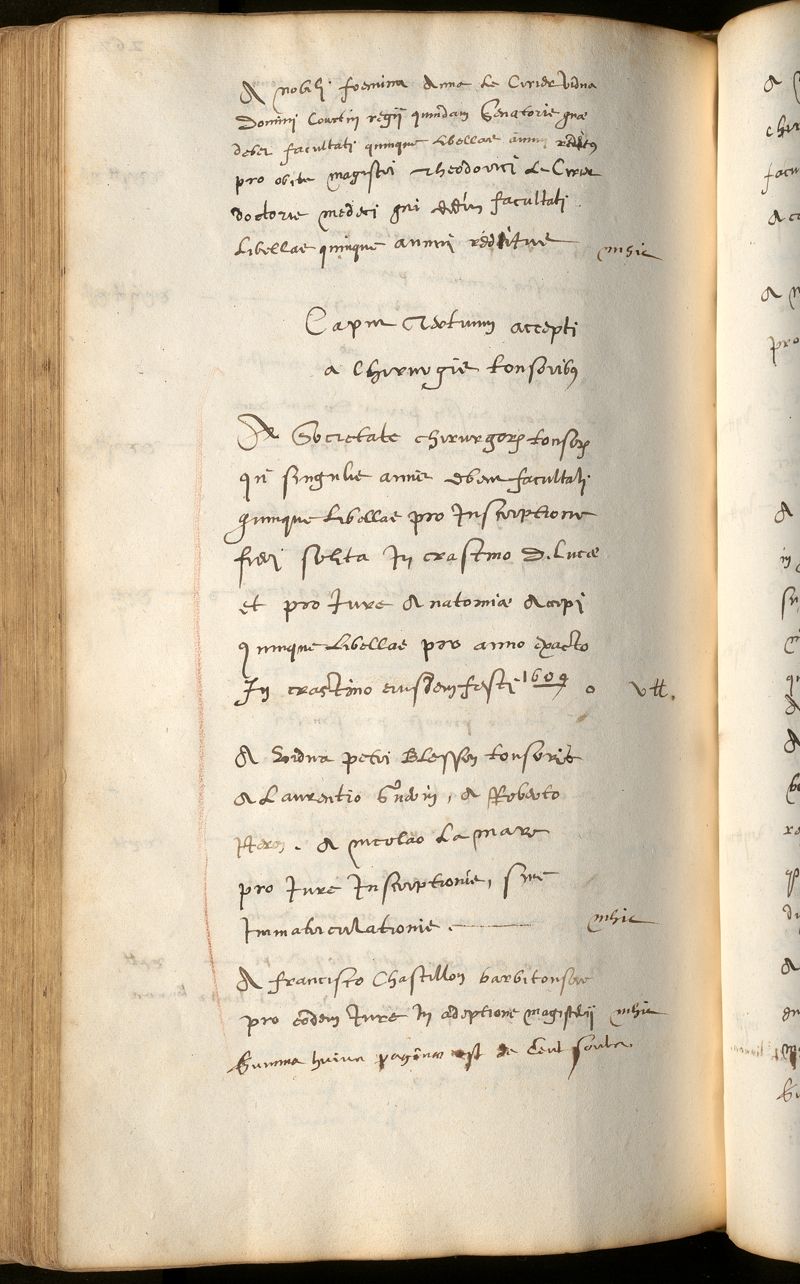 A nobili foemina Anna Le Cirier vidua
Domini Courtin regij quondam Senatoris quae
debet facultati quinque libellas annui reditus
pro obitu magistri Theodorici Le Cirier
doctoris medici qui dedit facultati
Libellas quinque annui reditus nihil
Caput Sextum accepti
a Chirurgis tonsoribus
A Societate chirurgorum tonsorum
qui singulis annis debent facultati
quinque Libellas pro Inscriptione
fieri solita In crastino D. Lucae
et pro Jure Anatomiae Accepi
quinque Libellas pro anno exacto
In crastino eiusdem festi 1609 vtt.
A vidua petri Blesson tonsoris
A Laurentio , A Roberto
A nicolao La mare
pro Jure Inscriptionis, sive
Immatriculationis. nihil
A francisco Chastillon barbitonsore
pro eodem Jure In adeptione magisterij nihil
Summa huius paginae est de Cent soulz
A
chir
facu
A
A
pro
A
in
A
A
A